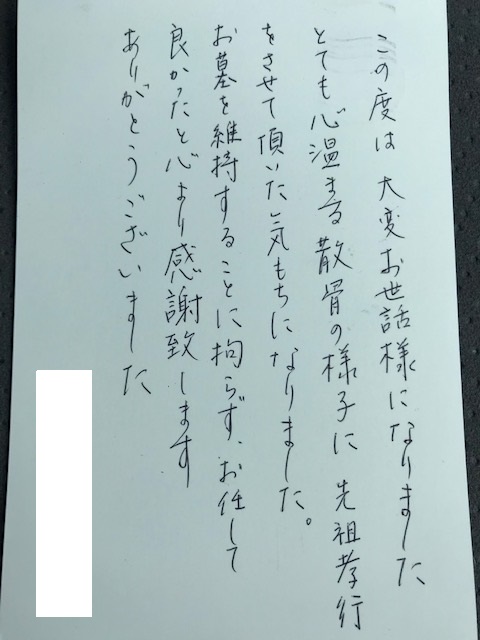 この度は 大変お世話様になりました
とても心温まる散骨の様子に 先祖孝行
をさせて頂いた気もちになりました。
お墓を維持することに拘らず、お任して
良かったと心より感謝致します
ありがとうございました